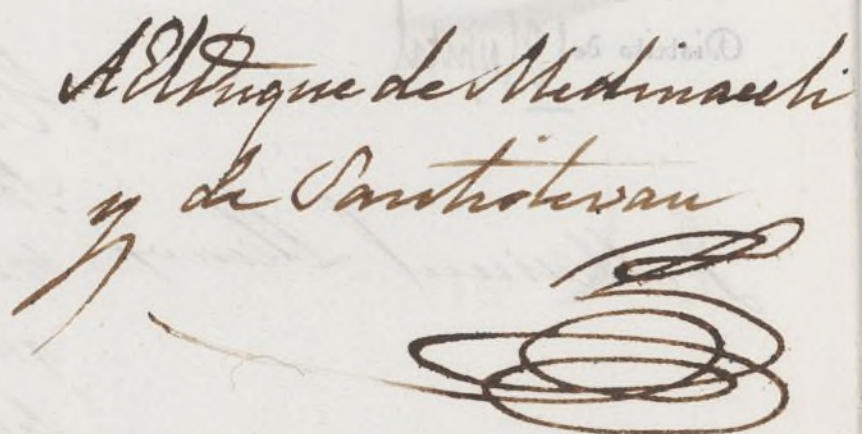 A El Duque de Medinaceli
y de Santistevan